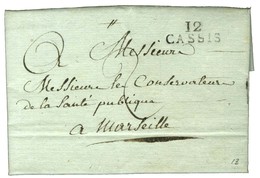 12
CASSIS
A Messieurs
Messieurs les Conservateurs
de la Santé publique
a Marseille
12